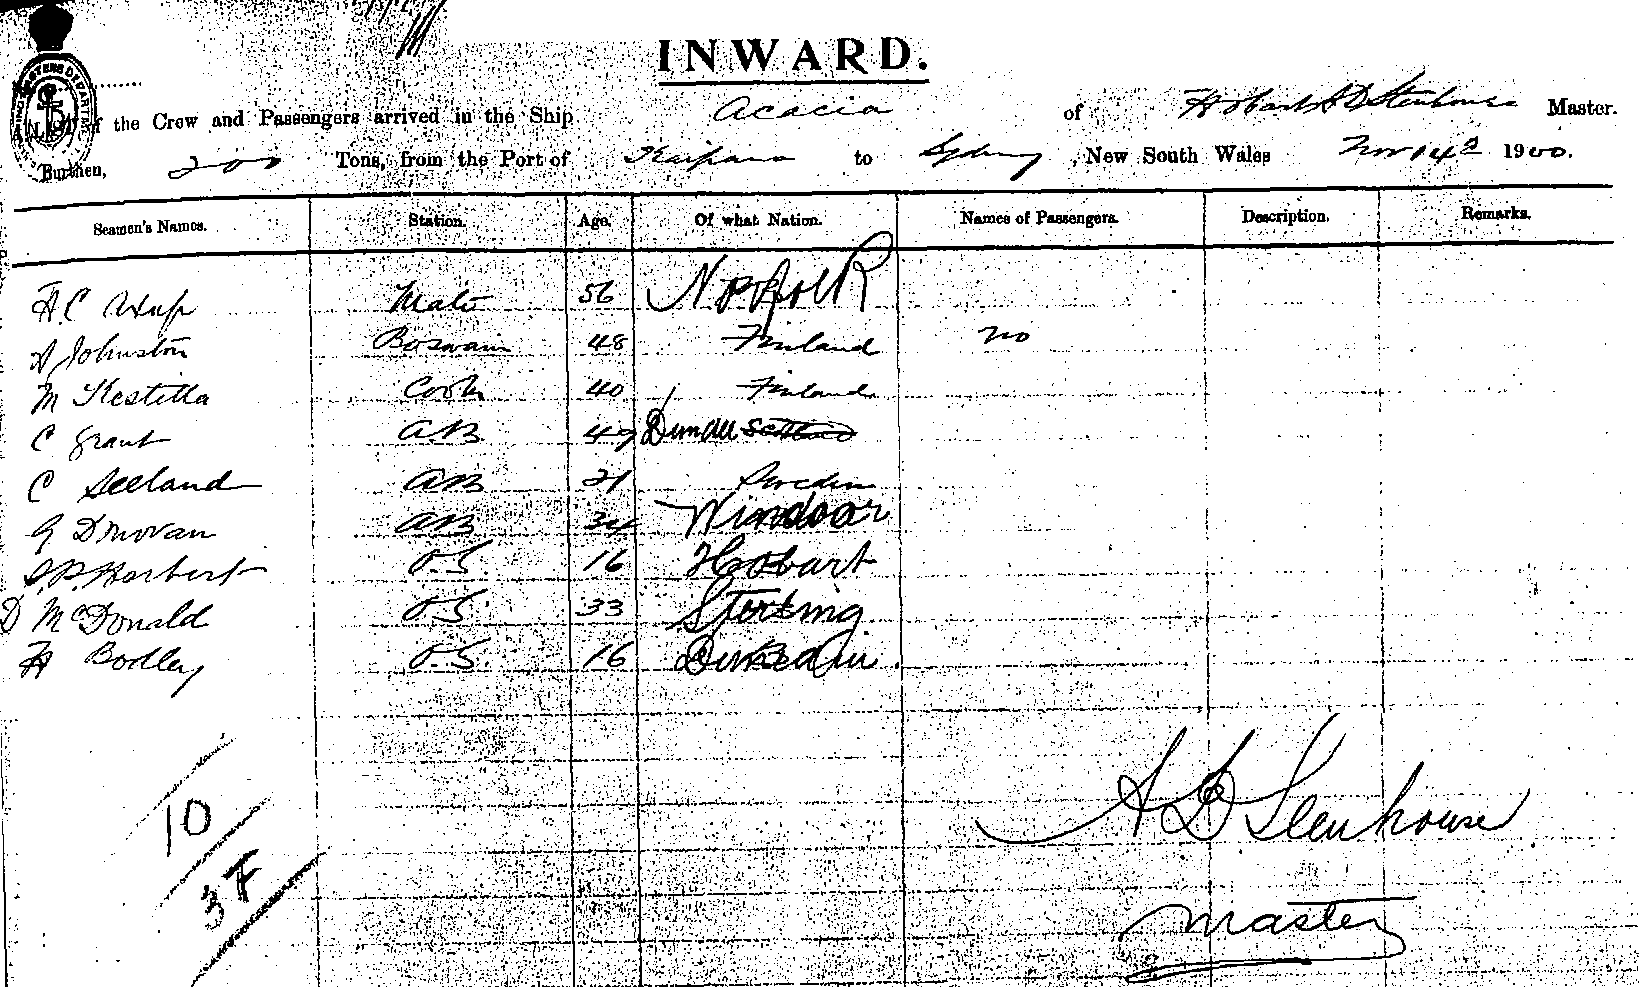 INWARD.
of the Crew and Passengers arrived in the Ship Acacia of Hobart A D Stenhouse Master.
Burthen, 200 Tons, from the Port of Kaipara to Sydney, New South Wales Nov 14th 1900.
Seamen's Names. Station. Age. Of what Nation. Names of Passengers. Description. Remarks.
A.C Mate 56 Norfolk
A Johnston Boswain 48 Finland no
M Kestilla Cook 40 Finland
C Grant AB 47 Dundee Scotland
C Seeland AB 21 Sweden
G Donovan AB 34 Windsor
S.P. Harbert O.S 16 Hobart
D McDonald O.S 33 Sterling
H Bodley O.S. 16 Dunedin.
A D Stenhouse
Master
10
3F